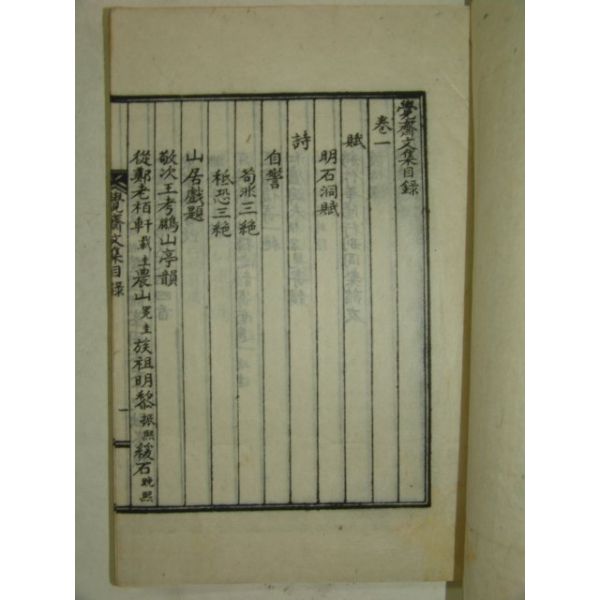 覺齋文集目錄
卷一
賦
明石洞賦
詩
自警
三絶
秪恐三絶
山居戲題
敬次王考鵬山亭韻
從鄭老栢軒載圭農山冕圭族祖明黎振熙 石晩熙
覺齋文集目錄 一